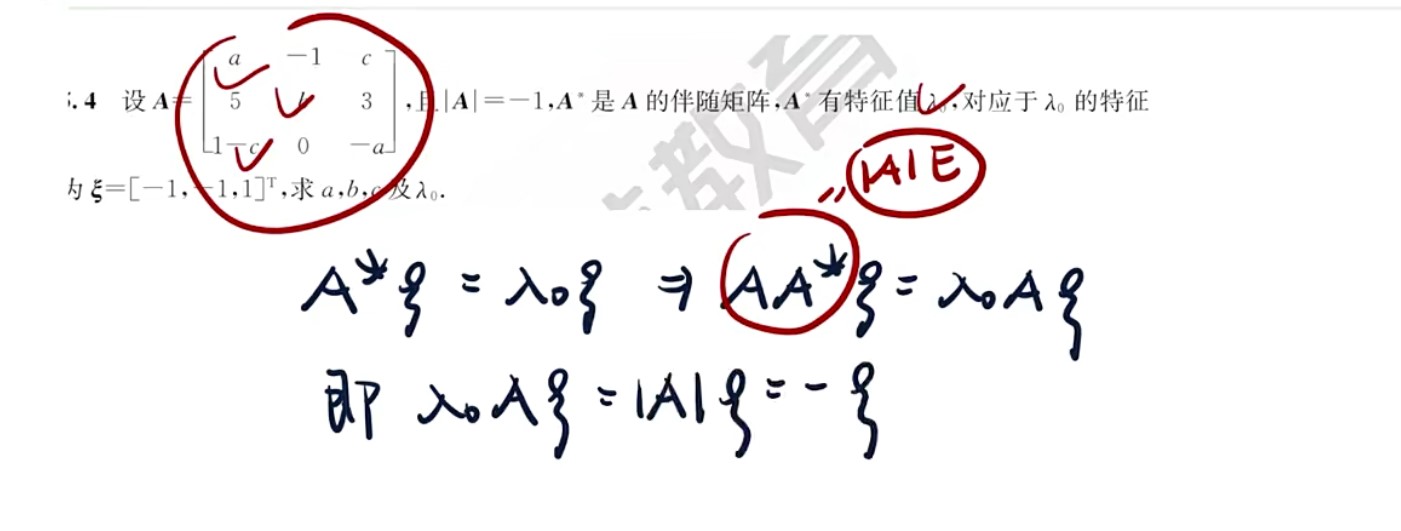 a −1 c
.4 设 A= 5 3 ,且|A|=−1,A* 是 A 的伴随矩阵,A* 有特征值λ₀,对应于 λ₀ 的特征
1−c 0 −a
为 ξ=[−1,−1,1]ᵀ,求 a,b,c及λ₀.
教育
|A|E
A*ξ = λ₀ξ ⇒ AA*ξ = λ₀Aξ
即 λ₀Aξ = |A|ξ = −ξ